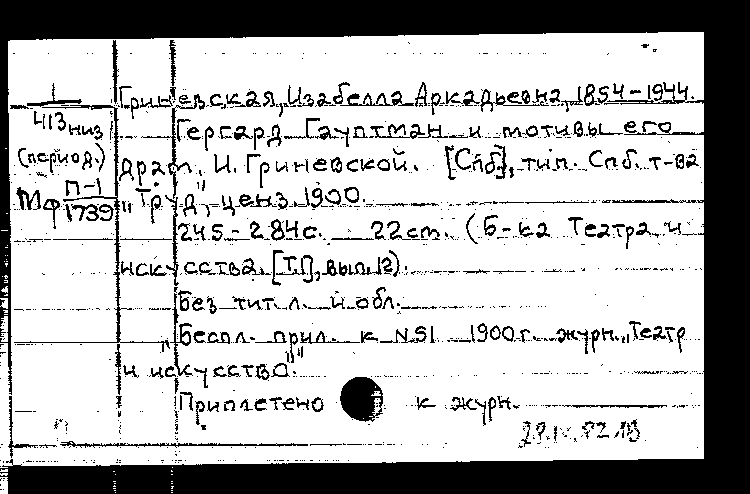 1
413 низ
(период.)
Мф П-1
1739
Гриневская, Изабелла Аркадьевна, 1854-1944.
Гергард Гауптман и мотивы его
драм. И. Гриневской. [Спб], тип. Спб. т-ва
„Труд", ценз. 1900.
245-284с. 22см. (Б-ка Театра и
искусства. [Т.I], вып. 12).
Без тит. л. и обл.
„Беспл. прил. к N51 1900г. журн. „Театр
и искусство"."
Приплетено к журн.